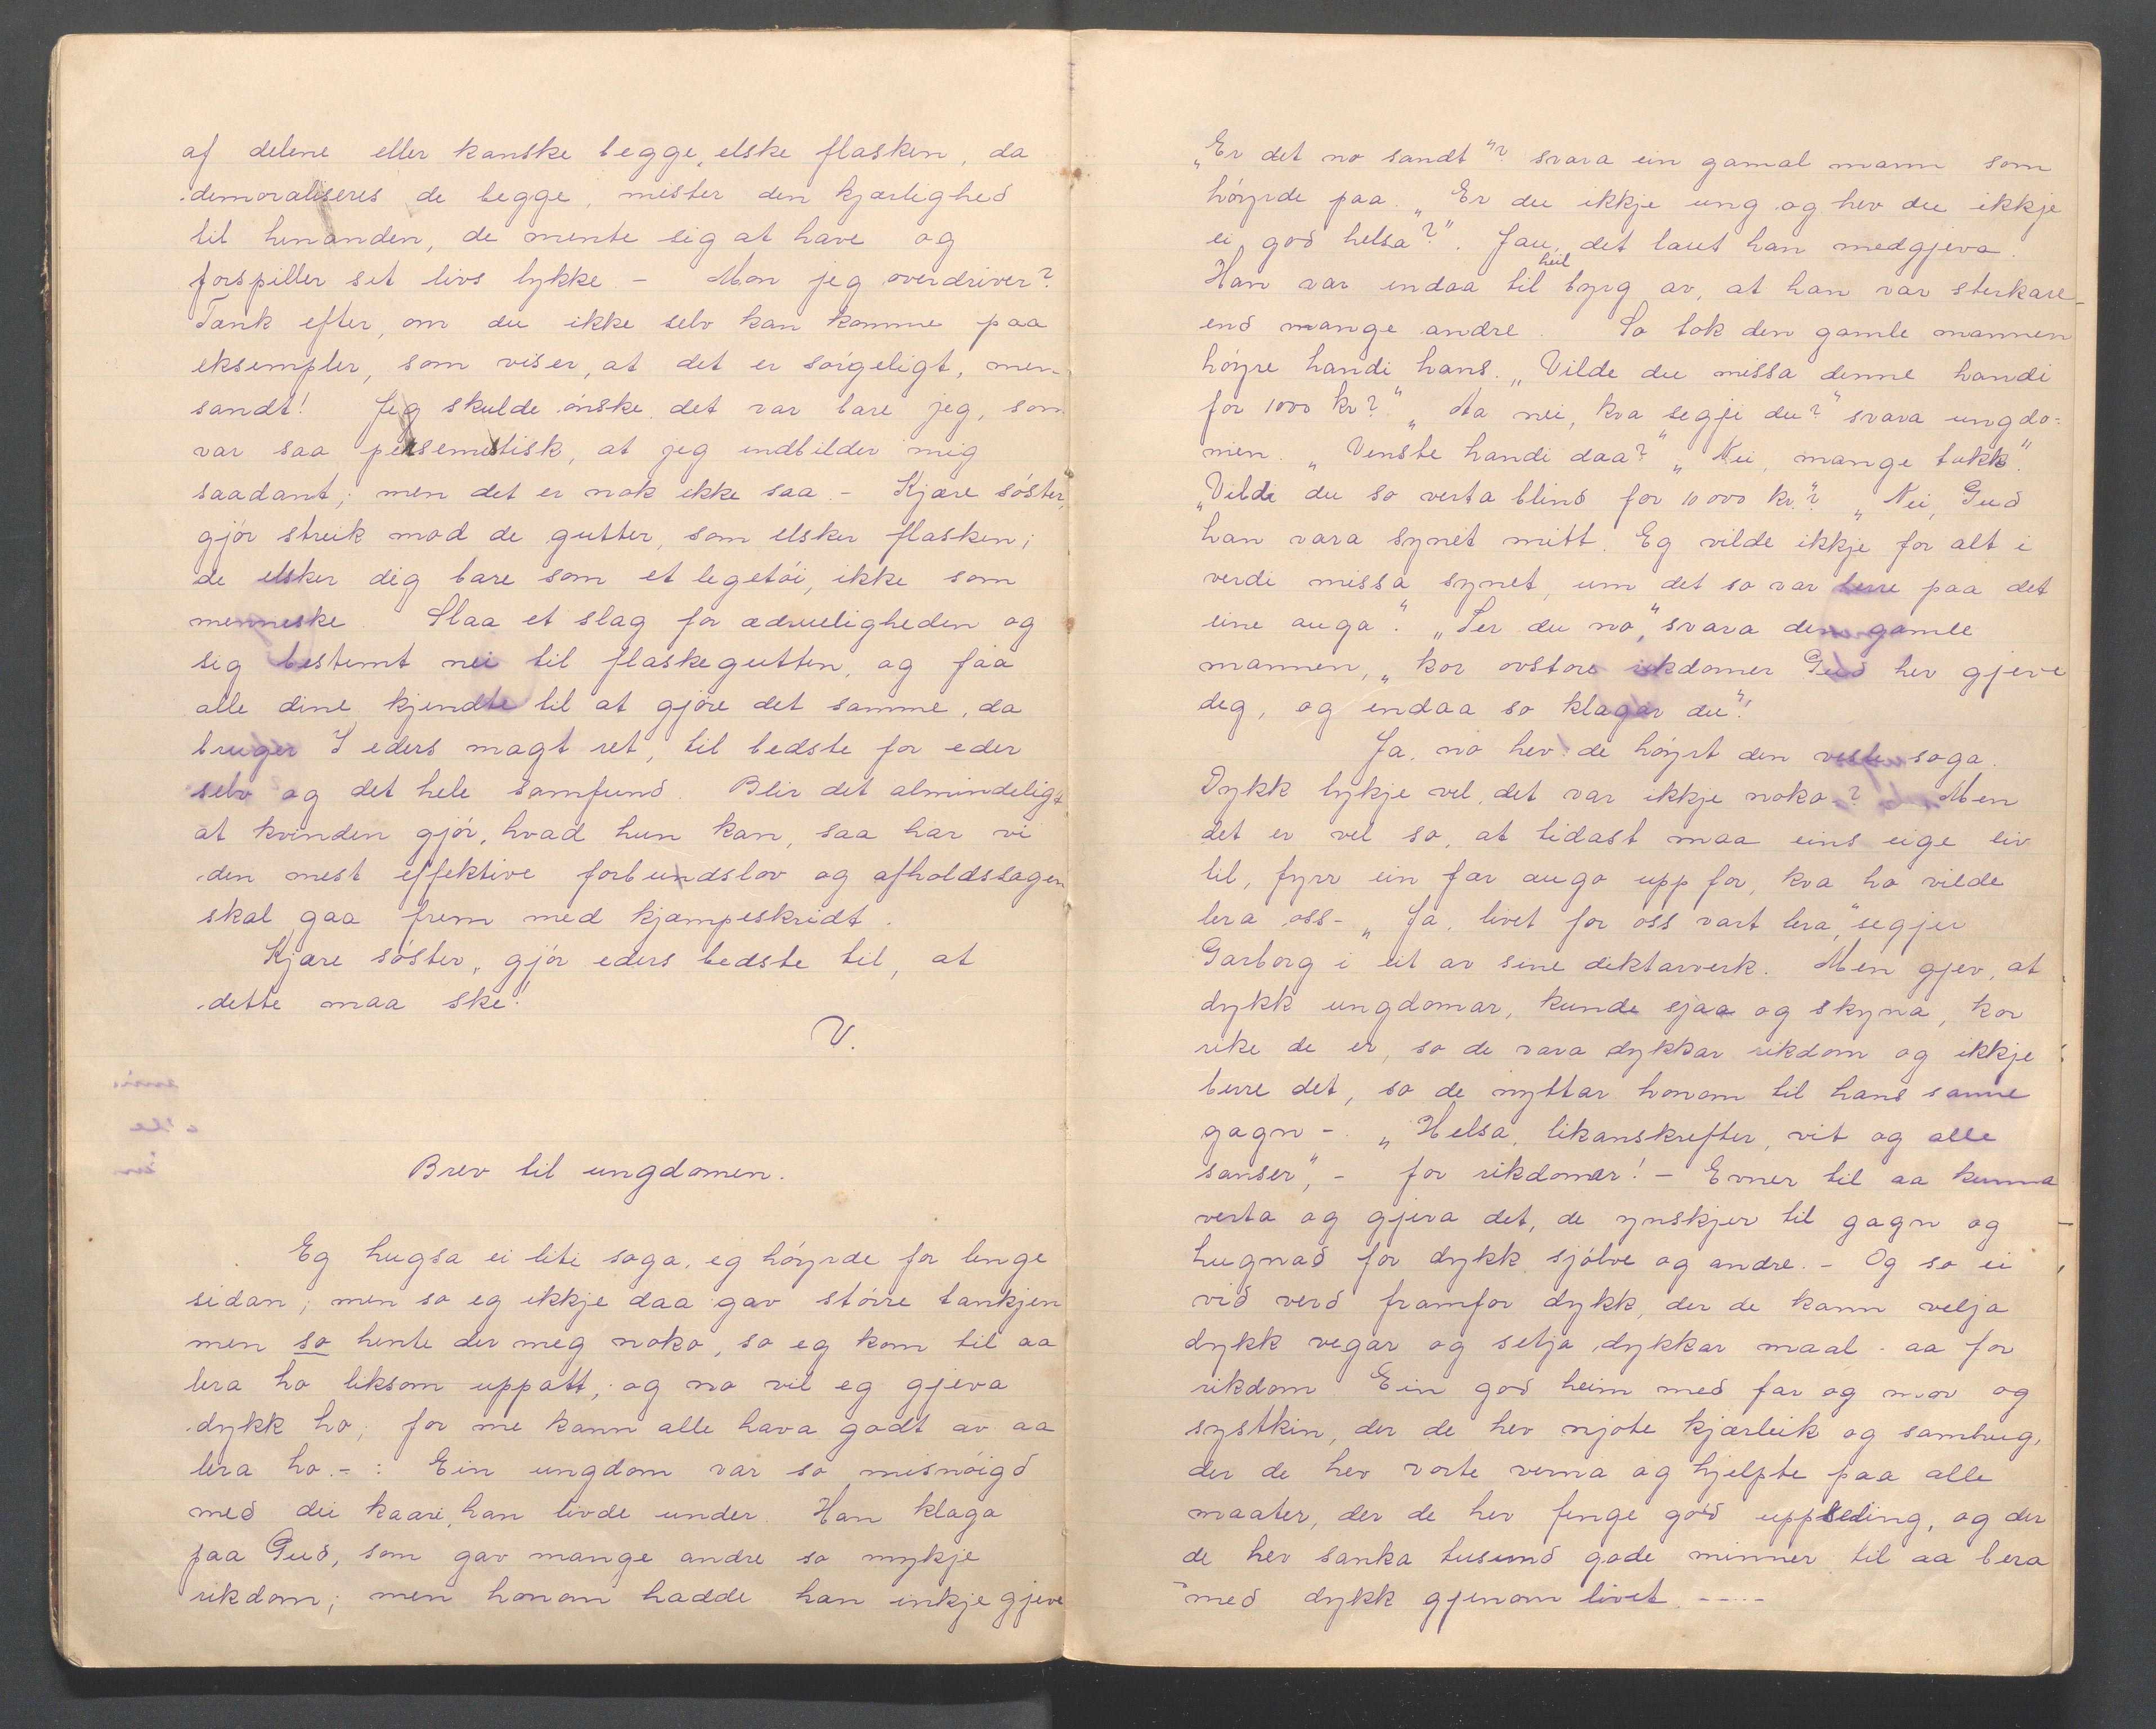 af delene eller kanske begge, elske flasken, da
demoraliseres de begge, mister den kjærlighed
til hinanden, de mente sig at have og
forspiller sit livs lykke - Mon jeg overdriver?
Tænk efter, om du ikke selv kan komme paa
eksempler, som viser, at det er sórgeligt, men
sandt! Jeg skulde ónske det var bare jeg, som
var saa pessemistisk, at jeg indbilder mig
saadant; men det er nok ikke saa. - Kjære sóster,
gjór streik mod de gutter, som elsker flasken;
de elsker dig bare som et legetói, ikke som
menneske. Slaa et slag for ædrueligheden og
sig bestemt nei til flaskegutten, og faa
alle dine kjendte til at gjóre det samme, da
bruger I eders magt ret, til bedste for eder
selv og det hele samfund Blir det almindeligt
at kvinden gjór, hvad hun kan, saa har vi
den mest effektive forbundslov og afholdssagen
skal gaa frem med kjæmpeskridt.
Kjære sóster, gjór eders bedste til, at
dette maa ske!
V.
Brev til ungdomen.
Eg hugsa ei liti soga, eg hóyrde for lenge
sidan; men so eg ikkje daa gav stórre tankjen
men so hente der meg noko, so eg kom til aa
lera ho liksom uppatt, og no vil eg gjeva
dykk ho; for me kann alle hava godt av aa
lera ho. - : Ein ungdom var so misnóigd
med dei kaari, han livde under. Han klaga
paa Gud, som gav mange andre so mykje
rikdom; men honom hadde han inkje gjeve
„Er det no sandt"? svara ein gamal mann som
hóyrde paa. „Er du ikkje ung og hev du ikkje
ei god helsa?". Jau, det laut han medgjeva.
Han var endaa til heil byrg av, at han var sterkare
end mange andre. So tok den gamle mannen
hóyre handi hans. „Vilde du missa denne handi
for 1000 kr?" „Aa nei, kva segji du?" svara ungdo-
men. „Venste handi daa?" „Nei, mange takk".
„Vilde du so verta blind for 10000 kr"? „Nei, Gud
han vara synet mitt. Eg vilde ikkje for alt i
verdi missa synet, um det so var berre paa det
eine auga". „Ser du no," svara den gamle
mannen, „kor ovstore rikdomer Gud hev gjeve
deg, og endaa so klagar du"!
Ja, no hev de hóyrt den vesle soga.
Dykk tykje vel, det var ikkje noko? Men
det er vel so, at tidast maa eins eige liv
til, fyrr ein fær augo upp for, kva ho vilde
lera oss - „Ja, livet for oss vart lera," segjer
Garborg i eit av sine diktarverk. Men gjev, at
dykk ungdomar, kunde sjaa og skyna, kor
rike de er, so de vara dykkar rikdom og ikkje
berre det, so de nyttar honom til hans sanne
gagn -. „Helsa, likamskrefter, vit og alle
sanser", - for rikdomar! - Evner til aa kunna
verta og gjera det, de ynskjer til gagn og
hugnad for dykk sjólve og andre. - Og so ei
vid verd framfor dykk, der de kann velja
dykk vegar og setja dykkar maal - aa for
rikdom Ein god heim med far og mor og
systkin, der de hev njote kjærleik og samhug,
der de hev vorte verna og hjelpte paa alle
maater, der de hev fenge god uppseding, og der
de hev sanka tusund gode minner til aa bera
med dykk gjenom livet. ----